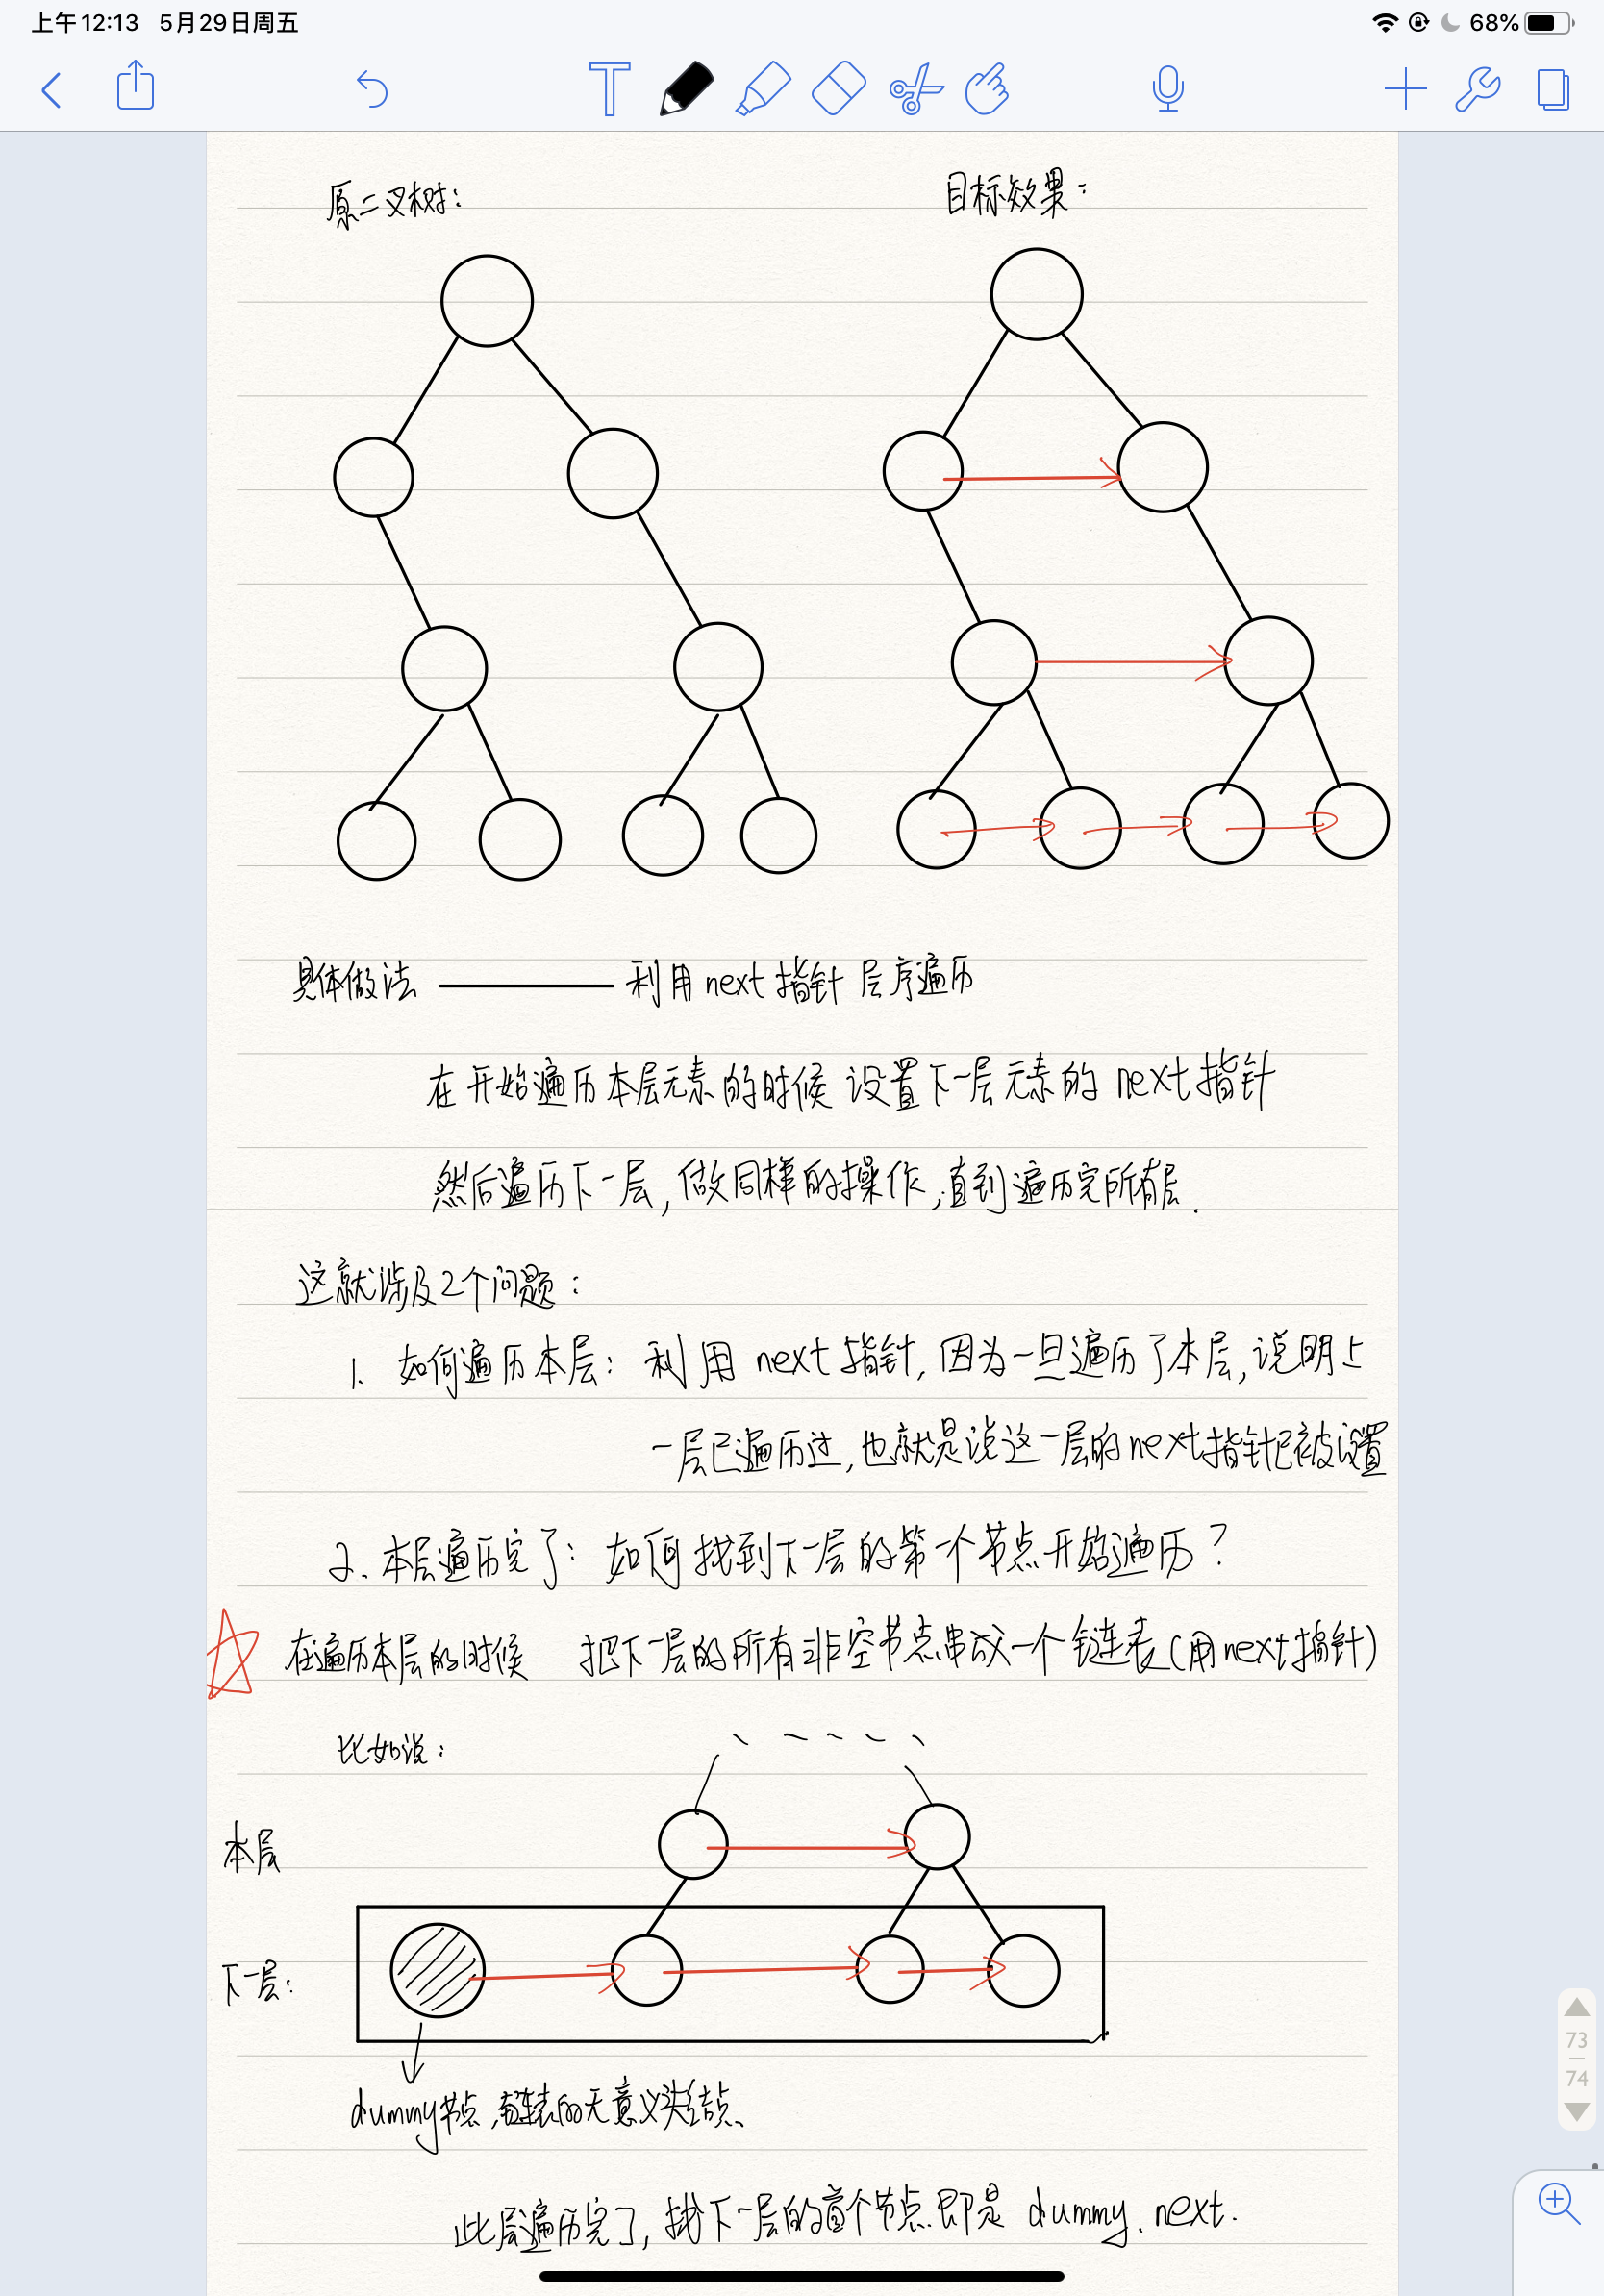 上午12:13 5月29日周五 68%
T
原二叉树: 目标效果:
具体做法 —— 利用 next 指针 层序遍历
在开始遍历本层元素的时候 设置下一层元素的 next 指针
然后遍历下一层,做同样的操作,直到遍历完所有层.
这就涉及2个问题:
1. 如何遍历本层: 利用 next 指针, 因为一旦遍历了本层,说明上
一层已遍历过,也就是说这一层的next指针已被设置
2. 本层遍历完了: 如何找到下一层的第一个节点开始遍历?
在遍历本层的时候 把下一层的所有非空节点串成一个链表(用next指针)
比如说:
本层
下一层:
dummy节点,链表的无意义头结点、
此层遍历完了, 找下一层的首个节点即是 dummy.next.
73
74